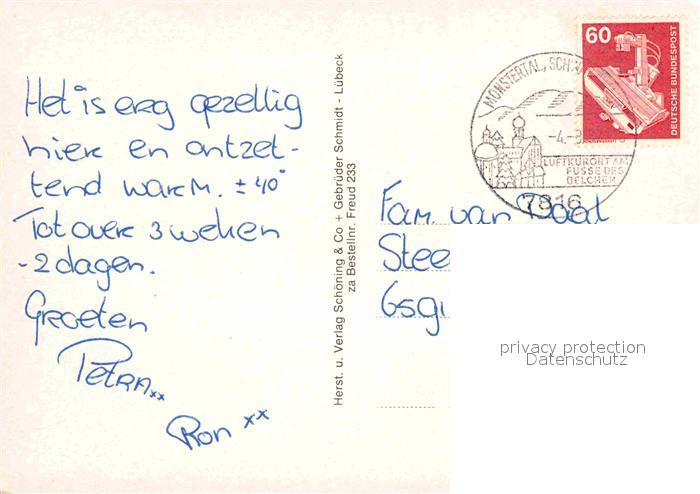 Het is erg gezellig
hier en ontzet-
tend warm. ± 40°
Tot over 3 weken
-2 dagen.
Groeten
Petra xx
Ron xx
Herst. u. Verlag Schöning & Co + Gebrüder Schmidt - Lübeck
za Bestellnr. Freud 233
60
DEUTSCHE BUNDESPOST
MÜNSTERTAL, SCHW
-4.-8
LUFTKURORT AM
FUSSE DES
BELCHEN
7816
Fam. van Daal
Stee
6sgi
privacy protection
Datenschutz